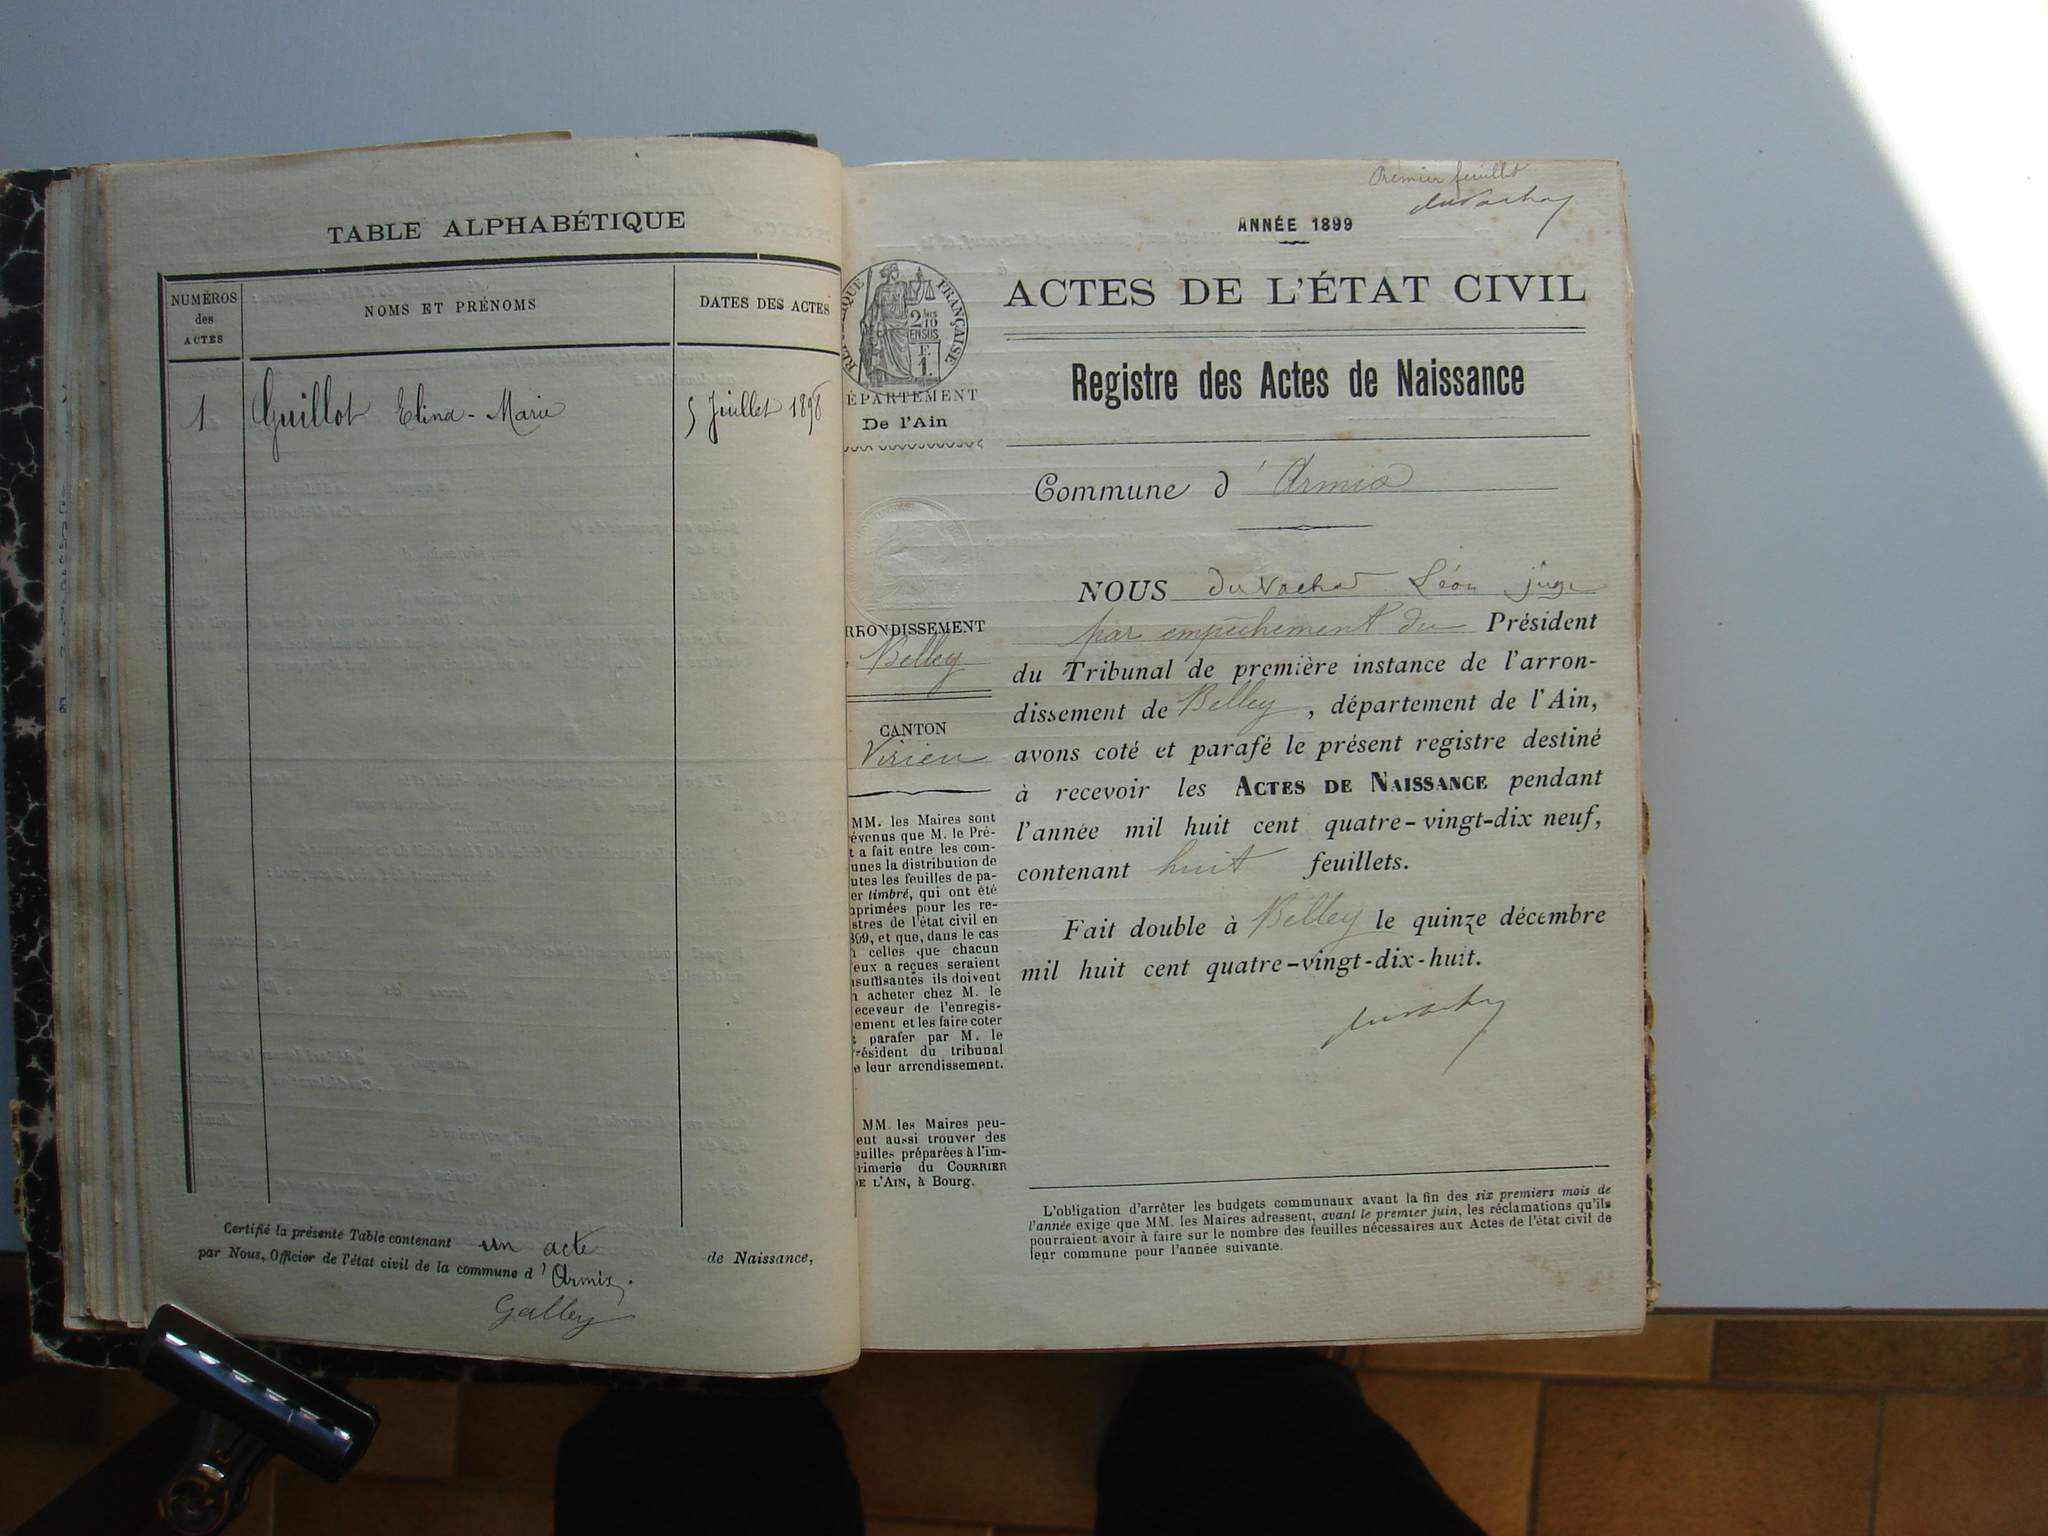 TABLE ALPHABÉTIQUE
NUMÉROS des ACTES
NOMS ET PRÉNOMS
DATES DES ACTES
1 Guillot Elina-Marie 5 Juillet 1898
Certifié la présente Table contenant un acte de Naissance,
par Nous, Officier de l'état civil de la commune d'Armix.
Galley
Premier feuillet
ANNÉE 1899
ACTES DE L'ÉTAT CIVIL
RÉPUBLIQUE FRANÇAISE
2/10
EN SUS
F.
1.
ÉPARTEMENT
De l'Ain
Registre des Actes de Naissance
Commune d'Armix
RRONDISSEMENT
Belley
CANTON
Virieu
MM. les Maires sont
évenus que M. le Pré-
t a fait entre les com-
unes la distribution de
utes les feuilles de pa-
er timbré, qui ont été
mprimées pour les re-
stres de l'état civil en
899, et que, dans le cas
celles que chacun
'eux a reçues seraient
nsuffisantes ils doivent
n acheter chez M. le
eceveur de l'enregis-
ement et les faire coter
t parafer par M. le
résident du tribunal
e leur arrondissement.
MM. les Maires peu-
ent aussi trouver des
euilles préparées à l'im-
rimerie du COURRIER
DE L'AIN, à Bourg.
NOUS du Vachat Léon juge
par empêchement du Président
du Tribunal de première instance de l'arron-
dissement de Belley, département de l'Ain,
avons coté et parafé le présent registre destiné
à recevoir les ACTES DE NAISSANCE pendant
l'année mil huit cent quatre-vingt-dix neuf,
contenant huit feuillets.
Fait double à Belley le quinze décembre
mil huit cent quatre-vingt-dix-huit.
L'obligation d'arrêter les budgets communaux avant la fin des six premiers mois de
l'année exige que MM. les Maires adressent, avant le premier juin, les réclamations qu'ils
pourraient avoir à faire sur le nombre des feuilles nécessaires aux Actes de l'état civil de
leur commune pour l'année suivante.